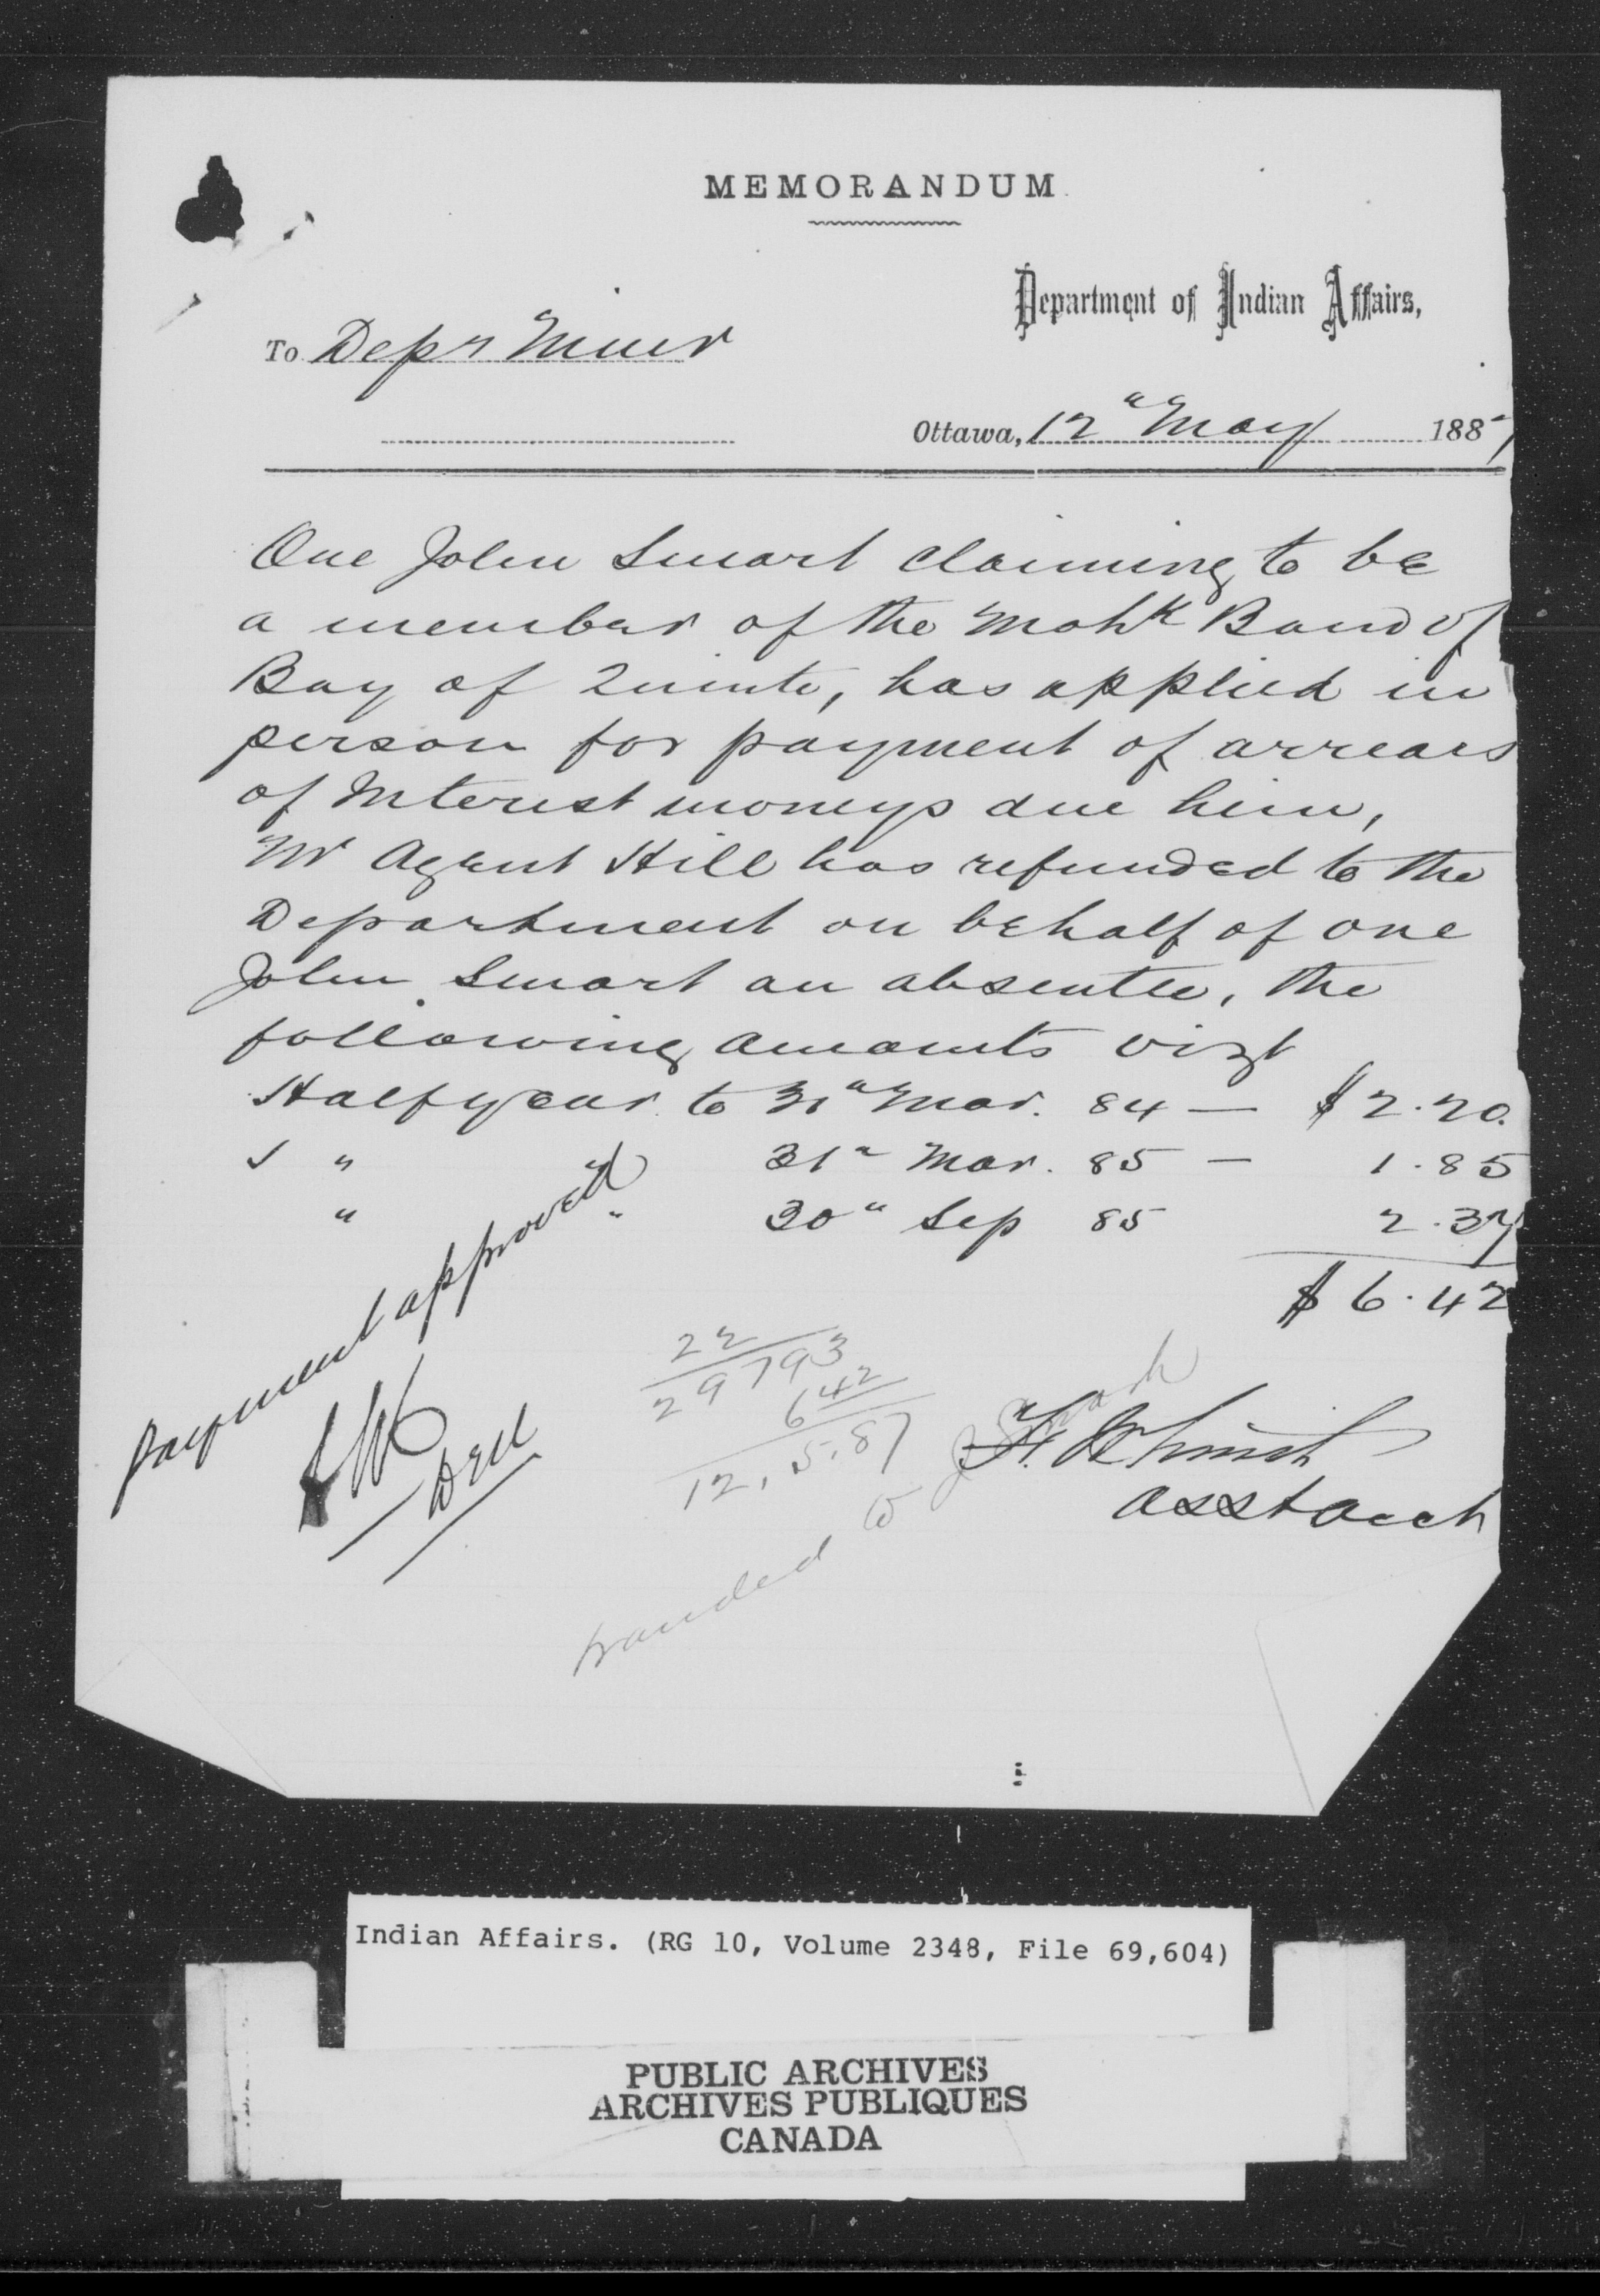 MEMORANDUM
Department of Indian Affairs,
To Depy Minr
Ottawa, 12" May 1887
One John Smart claiming to be
a member of the Mohk Band of
Bay of Quinte, has applied in
person for payment of arrears
of Interest moneys due him,
Mr Agent Hill has refunded to the
Department on behalf of one
John Smart an absentee, the
following amounts vizt
Half year to 31" Mar. 84 — $2.20
" " 31" Mar. 85 — 1.85
" " 30" Sep 85 2.37
$6.42
Payment approved
22
29793
642
12.5.87
handed to J Smart
Asst Acct
Indian Affairs. (RG 10, Volume 2348, File 69,604)
PUBLIC ARCHIVES
ARCHIVES PUBLIQUES
CANADA